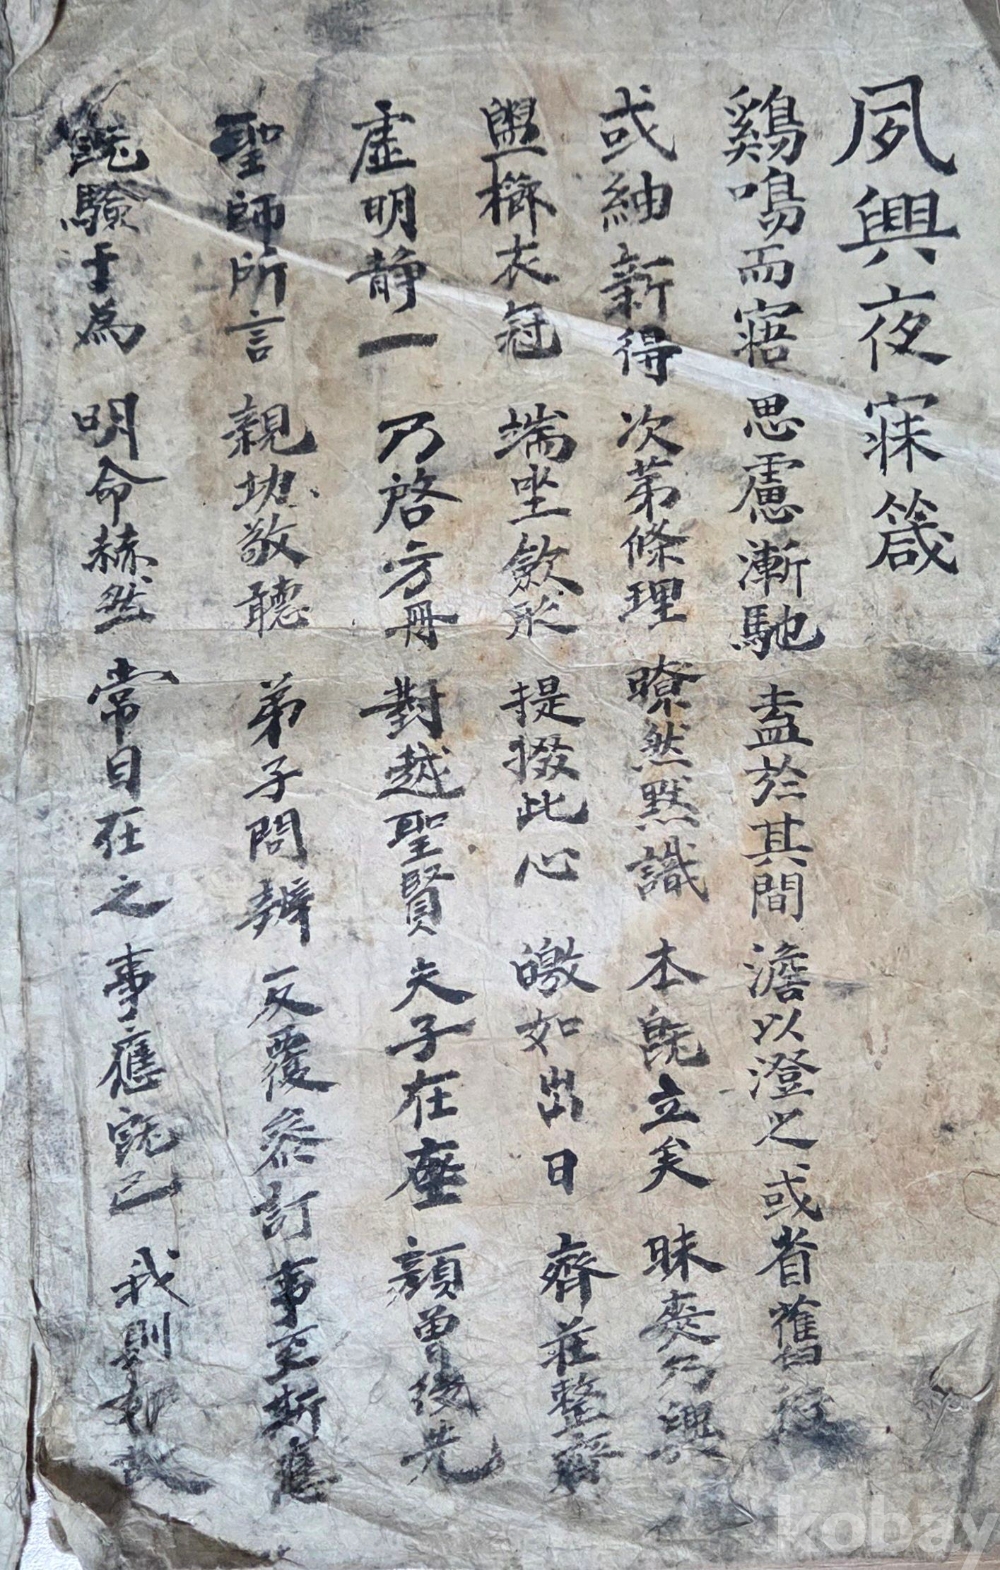 夙興夜寐箴
鷄鳴而寤 思慮漸馳 盍於其間 澹以澄之 或省舊
或紬新得 次第條理 瞭然默識 本旣立矣 昧爽乃興
盥櫛衣冠 端坐斂形 提掇此心 皦如出日 齊莊整齊
虛明静一 乃啓方冊 對越聖賢 夫子在座 顔曾後先
聖師所言 親切敬聽 弟子問辨 反覆叅訂 事至斯應
旣驗于爲 明命赫然 常目在之 事應旣已 我則如故
kobay